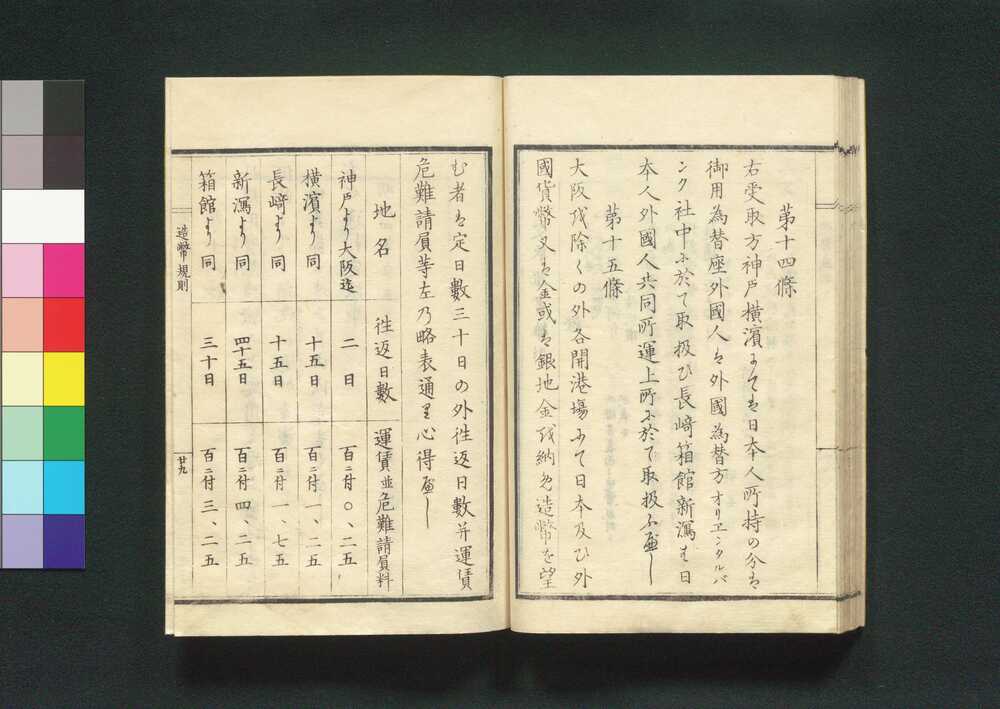 第十四條
右受取方神戸横濱ニてハ日本人所持の分ハ
御用為替座外國人ハ外國為替方オリエンタルバ
ンク社中ニ於て取扱ひ長﨑箱館新瀉ハ日
本人外國人共同所運上所ニ於て取扱ふ可し
第十五條
大阪を除くの外各開港場ニて日本及ひ外
國貨幣又ハ金或ハ銀地金を納め造幣を望
む者ハ定日數三十日の外往返日數并運賃
危難請負等左乃略表通り心得可し
地名 往返日數 運賃並危難請負料
神戸より大阪迄 二日 百ニ付〇、二五
横濱より同 十五日 百ニ付一、二五
長﨑より同 十五日 百ニ付一、七五
新瀉より同 四十五日 百ニ付四、二五
箱館より同 三十日 百ニ付三、二五
造幣規則
廿九